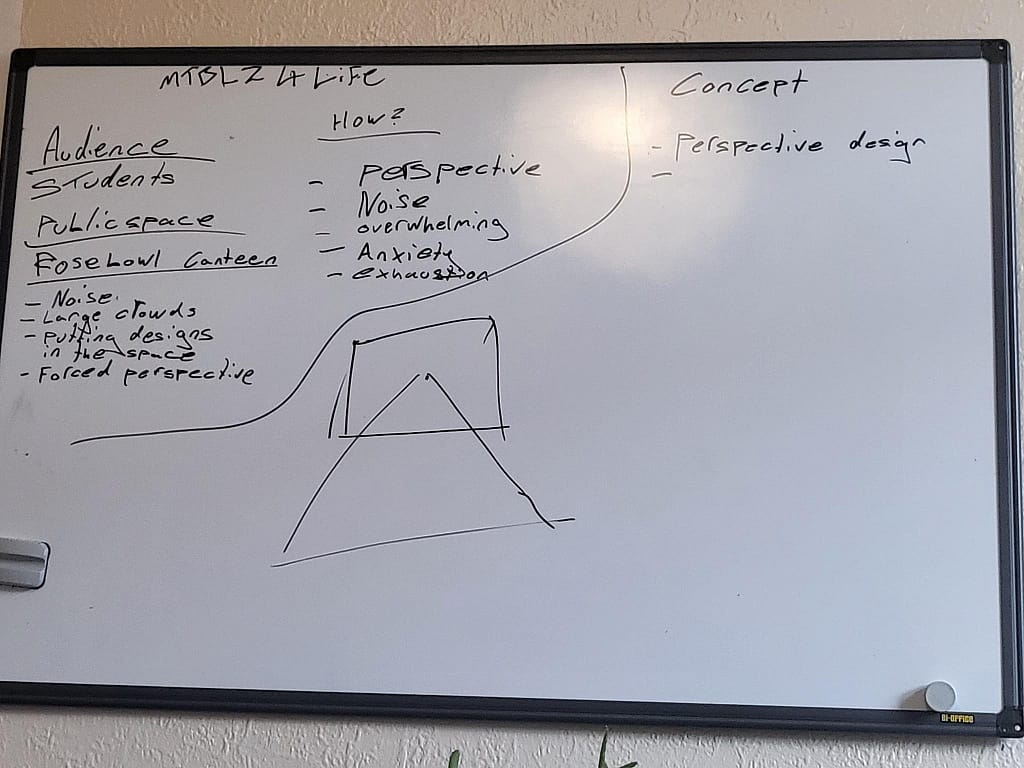 MTBLZ 4 LiFE
Audience
Students
Public space
Rosebowl Canteen
- Noise.
- Large crowds
- putting designs
in the space
- Forced perspective
How?
- perspective
- Noise
- overwhelming
- Anxiety
- exhaustion
Concept
- Perspective design
-
BI-OFFICE